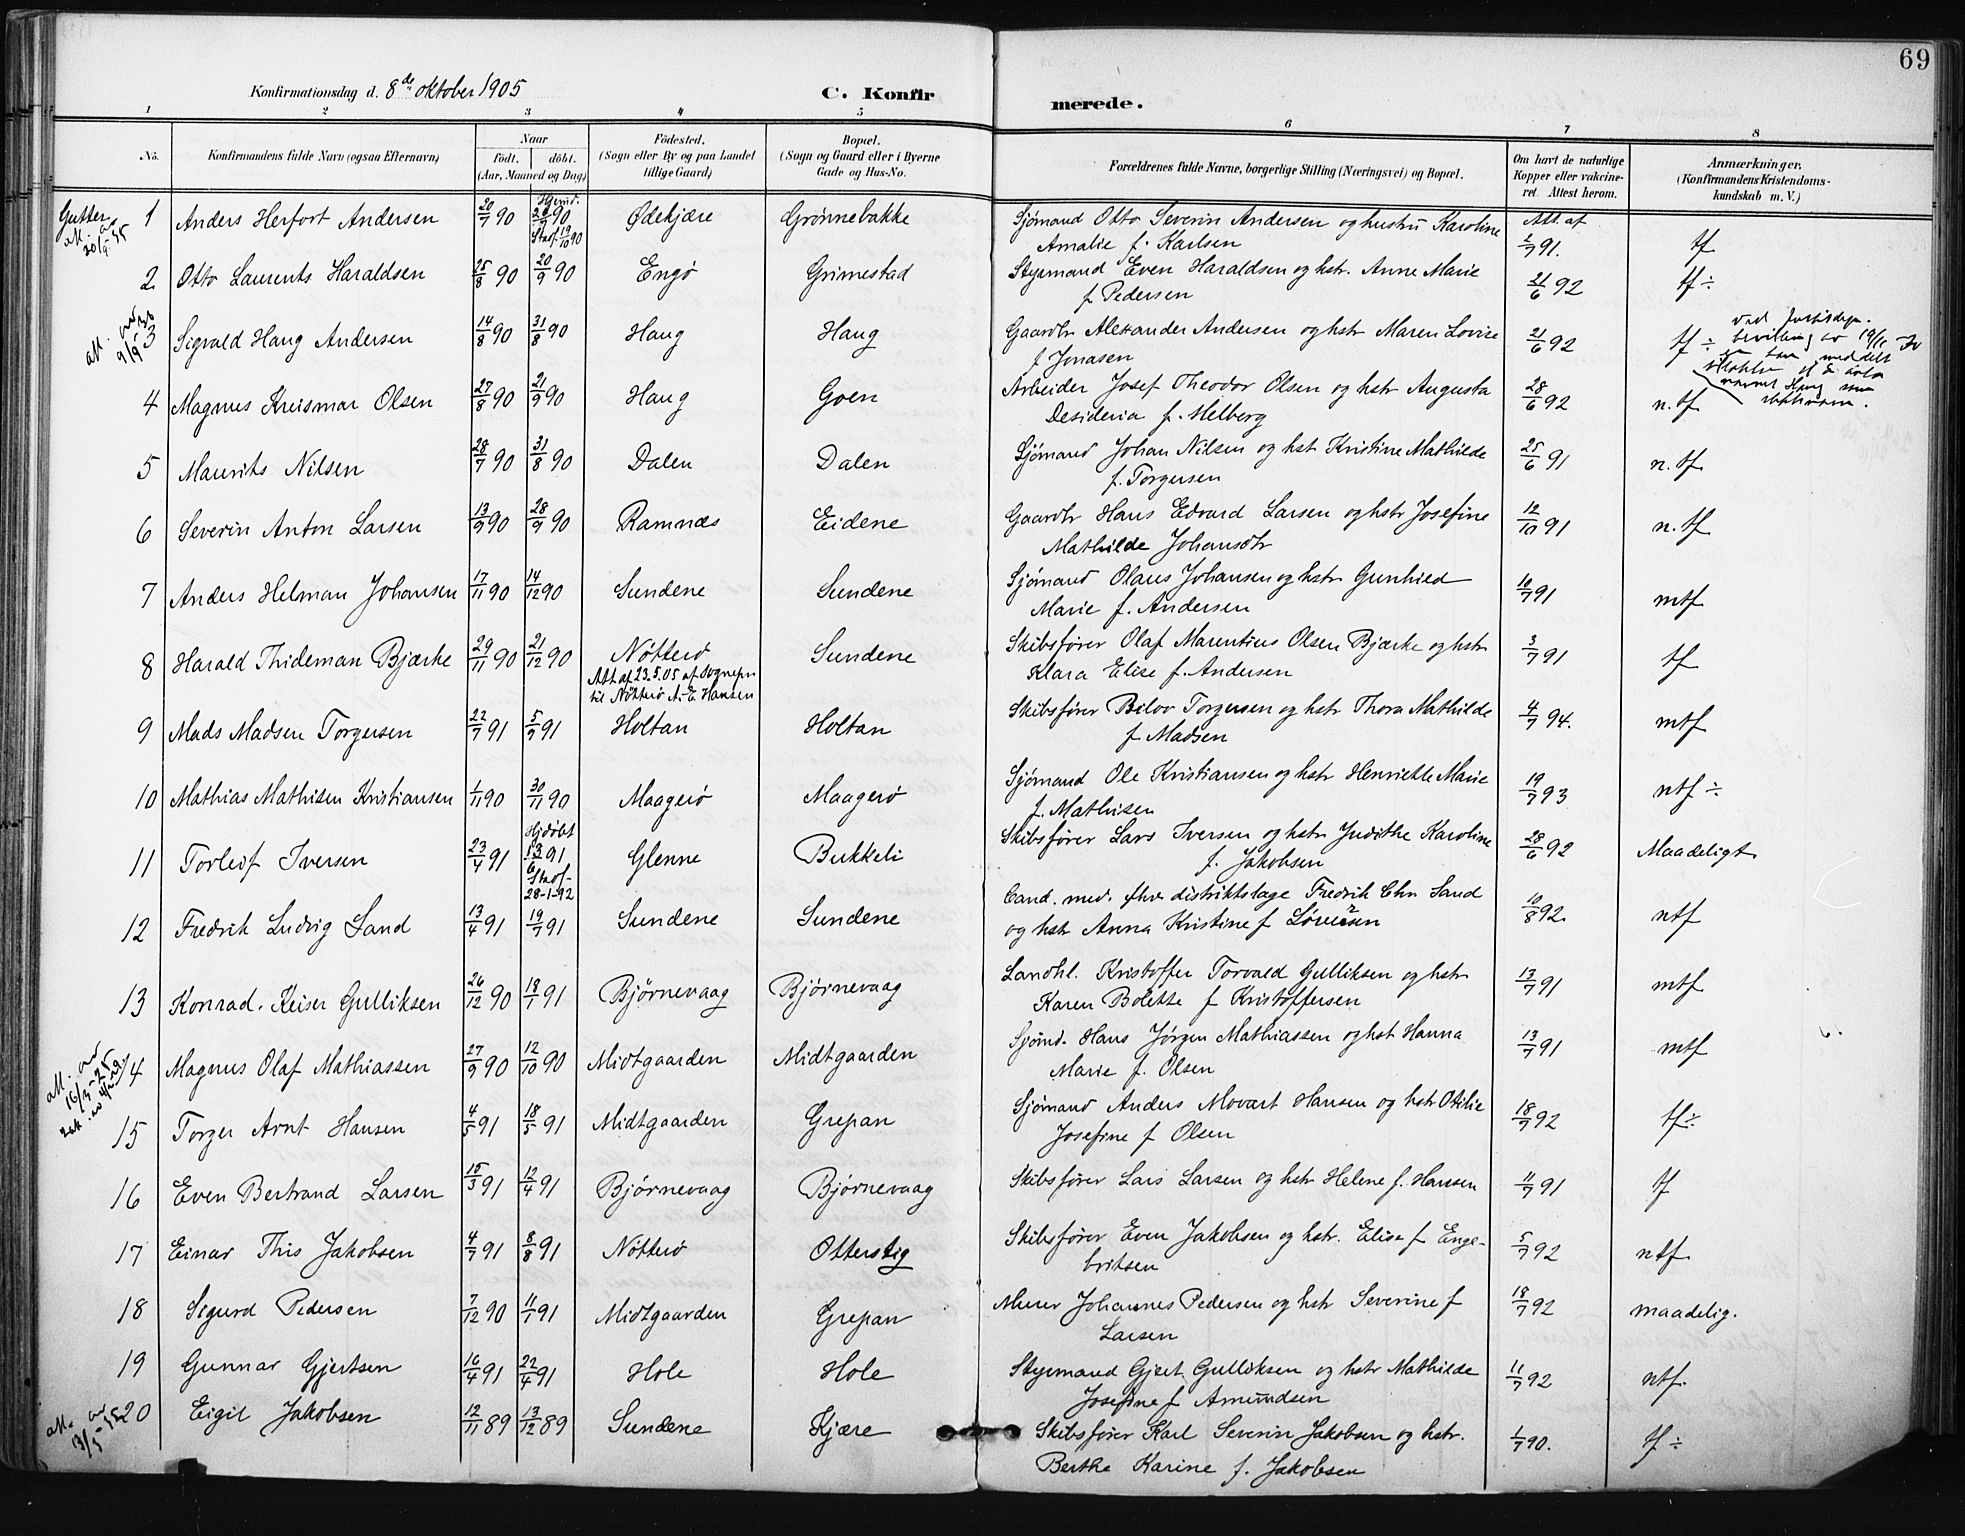 69
Konfirmationsdag d. 8de oktober 1905
C. Konfir
merede.
1 2 3 4 5 6 7 8
No.
Konfirmandens fulde Navn (ogsaa Efternavn)
Naar
födt. döbt.
(Aar, Maaned og Dag)
Födested.
(Sogn eller By og paa Landet
tillige Gaard)
Bopæl.
(Sogn og Gaard eller i Byerne
Gade og Hus-No.
Forældrenes fulde Navne, borgerlige Stilling (Næringsvei) og Bopæl.
Om havt de naturlige
Kopper eller vakcine-
ret. Attest herom.
Anmærkninger.
(Konfirmandens Kristendoms-
kundskab m. V.)
Gutter
att. av
20/9-35
1 Anders Herfort Andersen 20/7 90 Hjemd. 20/7 90 Stadf. 19/10 90 Ødekjære Grönnebakke Sjömand Otto Severin Andersen og hustru Karoline Att. af
Amalie f. Karlsen 2/7 91. tf
2 Otto Laurents Haraldsen 25/8 90 20/9 90 Engö Grimestad Styrmand Even Haraldsen og hstr. Anne Marie
f Pedersen 21/6 92 tf ÷
att. av
9/9-30
3 Sigvald Haug Andersen 14/8 90 31/8 90 Haug Haug Gaardbr Alexander Andersen og hstr Maren Lovise
f Jonasen 21/6 92 tf ÷
ved Justisdep.
bevilling av 19/11
meddelt
navnet Haug som
slektsnavn.
4 Magnus Kreismar Olsen 27/8 90 21/9 90 Haug Goen Arbeider Josef Theodor Olsen og hstr Augusta
Desideria f. Melberg 28/6 92 n. tf
5 Maurits Nilsen 28/7 90 31/8 90 Dalen Dalen Sjömand Johan Nilsen og hst Kristine Mathilde
f. Torgersen 25/6 91 n. tf
6 Severin Anton Larsen 13/9 90 28/9 90 Ramnæs Eidene Gaardbr Hans Edvard Larsen og hstr Josefine
Mathilde Johansdtr 12/10 91 n. tf
7 Anders Helman Johansen 17/11 90 14/12 90 Sundene Sundene Sjömand Olaus Johansen og hstr Gunhild
Marie f. Andersen 10/7 91 mtf
8 Harald Thideman Bjærke 29/11 90 21/12 90 Nötterö Sundene Skibsfører Olaf Marentius Olsen Bjærke og hstr
Att af 23.5.05 af Sognepr
til Nötterö A. E. Hansen
Klara Elise f. Andersen 3/7 91 tf
9 Mads Madsen Torgersen 22/7 91 5/9 91 Holtan Holtan Skibsfører Torgersen og hstr Thora Mathilde
f Madsen 4/7 94. mtf
10 Mathias Mathisen Kristiansen 1/11 90 30/11 90 Maagerö Maagerö Sjömand Ole Kristiansen og hstr Henriette Marie
f. Mathisen 19/7 93 ntf ÷
11 Torleif Iversen 23/4 91 Hjdöbt 13/6 91 Stadf. 28-1-92 Glenne Bukkeli Skibsfører Lars Iversen og hstr Judithe Karoline
f. Jakobsen 28/6 92 Maadeligt
12 Fredrik Ludvig Sand 13/4 91 19/7 91 Sundene Sundene Cand. med. fhv. distriktslæge Fredrik Chr. Sand
og hstr Anna Kristine f Lövesen 10/8 92. ntf
13 Konrad. Keiser Gulliksen 26/12 90 18/1 91 Björnevaag Björnevaag Landhl. Kristoffer Torvald Gulliksen og hstr
Karen Bolette f Kristoffersen 13/7 91 mtf
att. av
16/3-25
14 Magnus Olaf Mathiassen 27/9 90 12/10 90 Midtgaarden Midtgaarden Sjömd. Hans Jørgen Mathiassen og hst Hanna
Marie f. Olsen 13/7 91 mtf
15 Torger Arnt Hansen 4/5 91 18/5 91 Midtgaarden Grepan Sjömand Anders Movart Hansen og hstr Otilie
Josefine f Olsen 18/7 92 tf÷
16 Even Bertrand Larsen 15/3 91 12/4 91 Björnevaag Björnevaag Skibsfører Lars Larsen og hstr Helene f. Hansen 11/7 91 tf
17 Einar This Jakobsen 4/7 91 8/8 91 Nötterö Otterstig Skibsfører Even Jakobsen og hstr. Elise f Enge-
britsen 5/7 92 ntf
18 Sigurd Pedersen 7/12 90 11/1 91 Midtgaarden Grepan Murer Johannes Pedersen og hstr Severine f
Larsen 18/7 92 maadelig.
19 Gunnar Gjertsen 16/4 91 22/4 91 Hole Hole Styrmand Gjert Gulliksen og hstr Mathilde
Josefine f Amundsen 11/7 92 ntf.
att. av
13/5-35
20 Eigil Jakobsen 12/11 89 13/12 89 Sundene Kjære Skibsfører Karl Severin Jakobsen og hstr.
Berthe Karine f. Jakobsen 1/7 90. tf ÷